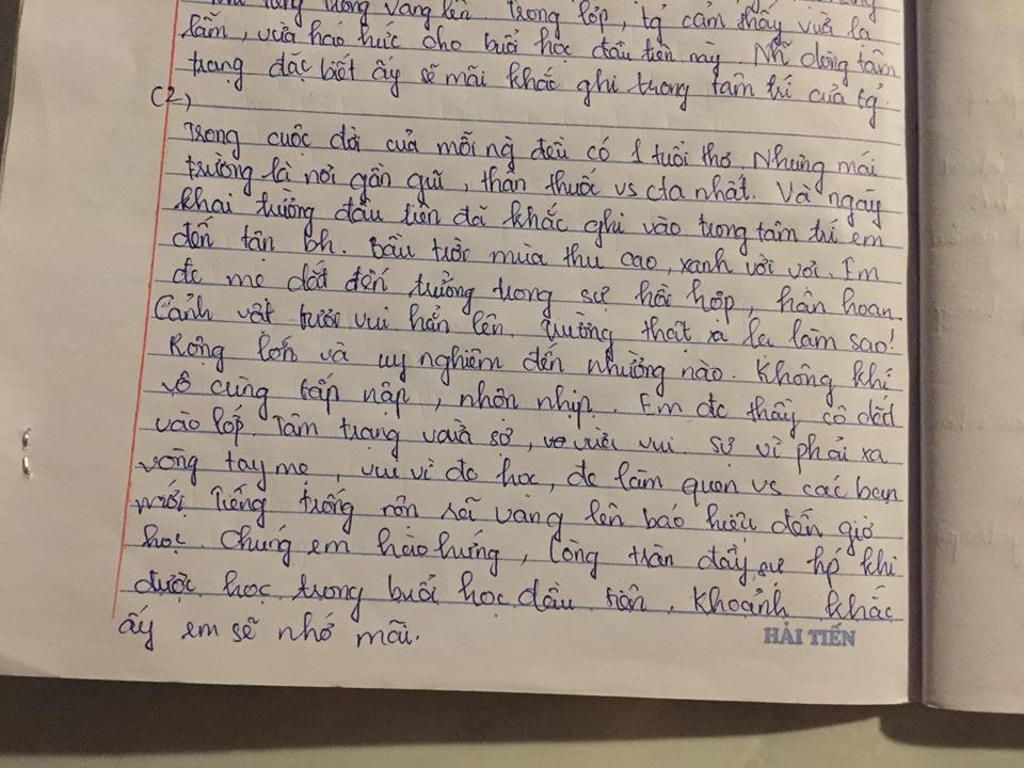 trống trường vang lên. Trong lớp, tg cảm thấy vừa la
lẫm, vừa háo hức cho buổi học đầu tiên này. Nh~ dòng tâm
trạng đặc biệt ấy sẽ mãi khắc ghi trong tâm trí của tg.
(2)
Trong cuộc đời của mỗi ng đều có 1 tuổi thơ. Nhưng mái
trường là nơi gần gũi, thân thuộc vs cta nhất. Và ngày
khai trường đầu tiên đã khắc ghi vào trong tâm trí em
đến tận bh. Bầu trời mùa thu cao, xanh vời vợi. Em
đc mẹ dắt đến trường trong sự hồi hộp, hân hoan.
Cảnh vật trước vui hẳn lên. Trường thật xa lạ làm sao!
Rộng lớn và uy nghiêm đến nhường nào. Không khí
vô cùng tấp nập, nhộn nhịp. Em đc thầy cô dắt
vào lớp. Tâm trạng vừa sợ, vừa vui. Sợ vì phải xa
vòng tay mẹ, vui vì đc học, đc làm quen vs các bạn
mới. Tiếng trống rộn rã vang lên báo hiệu đến giờ
học. Chúng em hào hứng, lòng tràn đầy sự hp khi
được học trong buổi học đầu tiên. Khoảnh khắc
ấy em sẽ nhớ mãi.
HẢI TIẾN